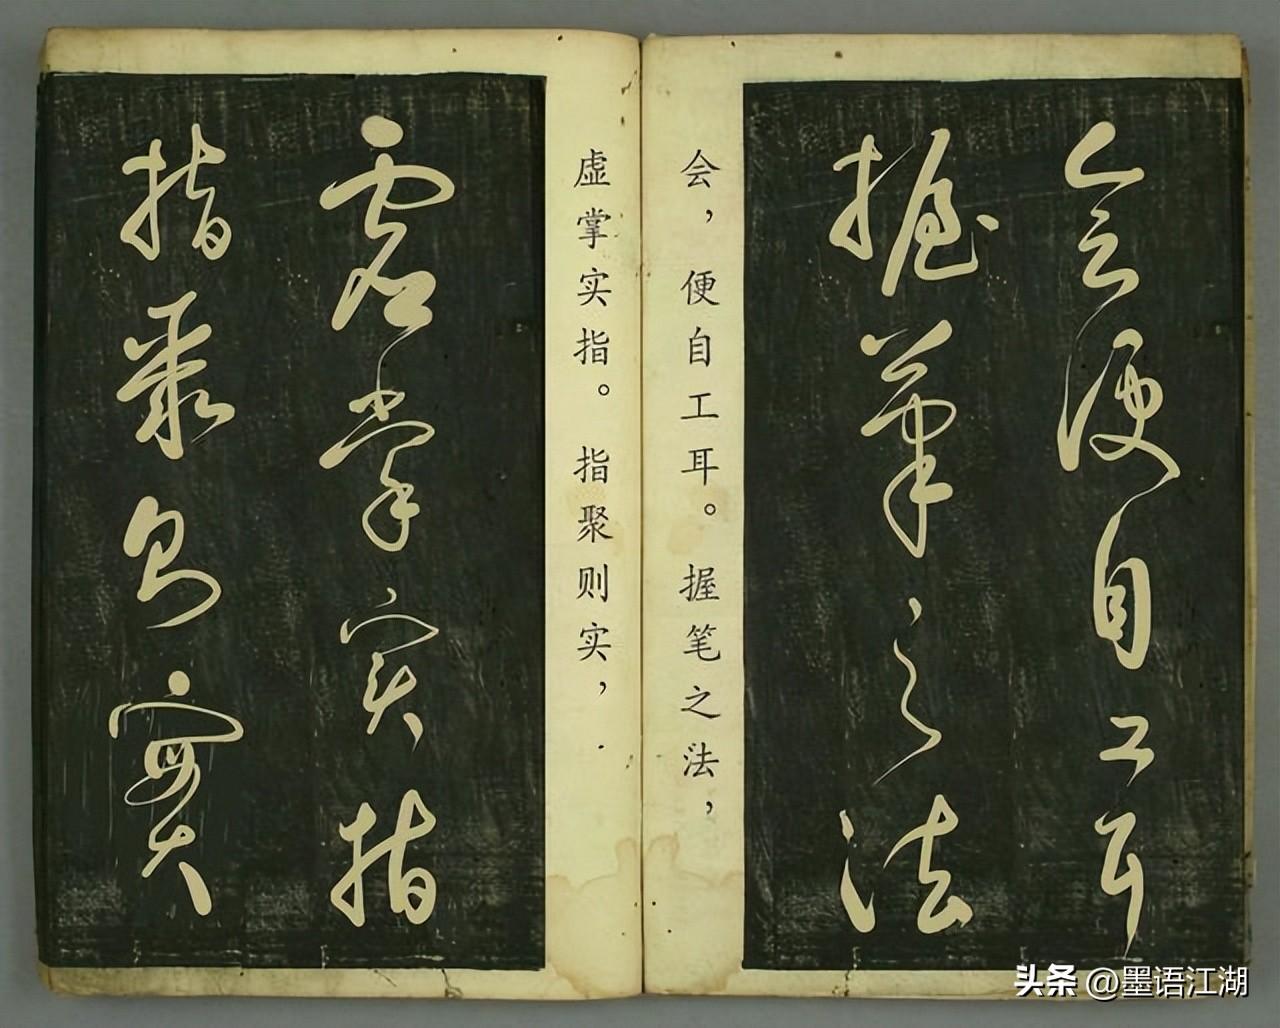 会便自工耳
握笔之法
会，便自工耳。握笔之法，
虚掌实指。指聚则实，
虚掌实指
指聚则实
头条 @墨语江湖